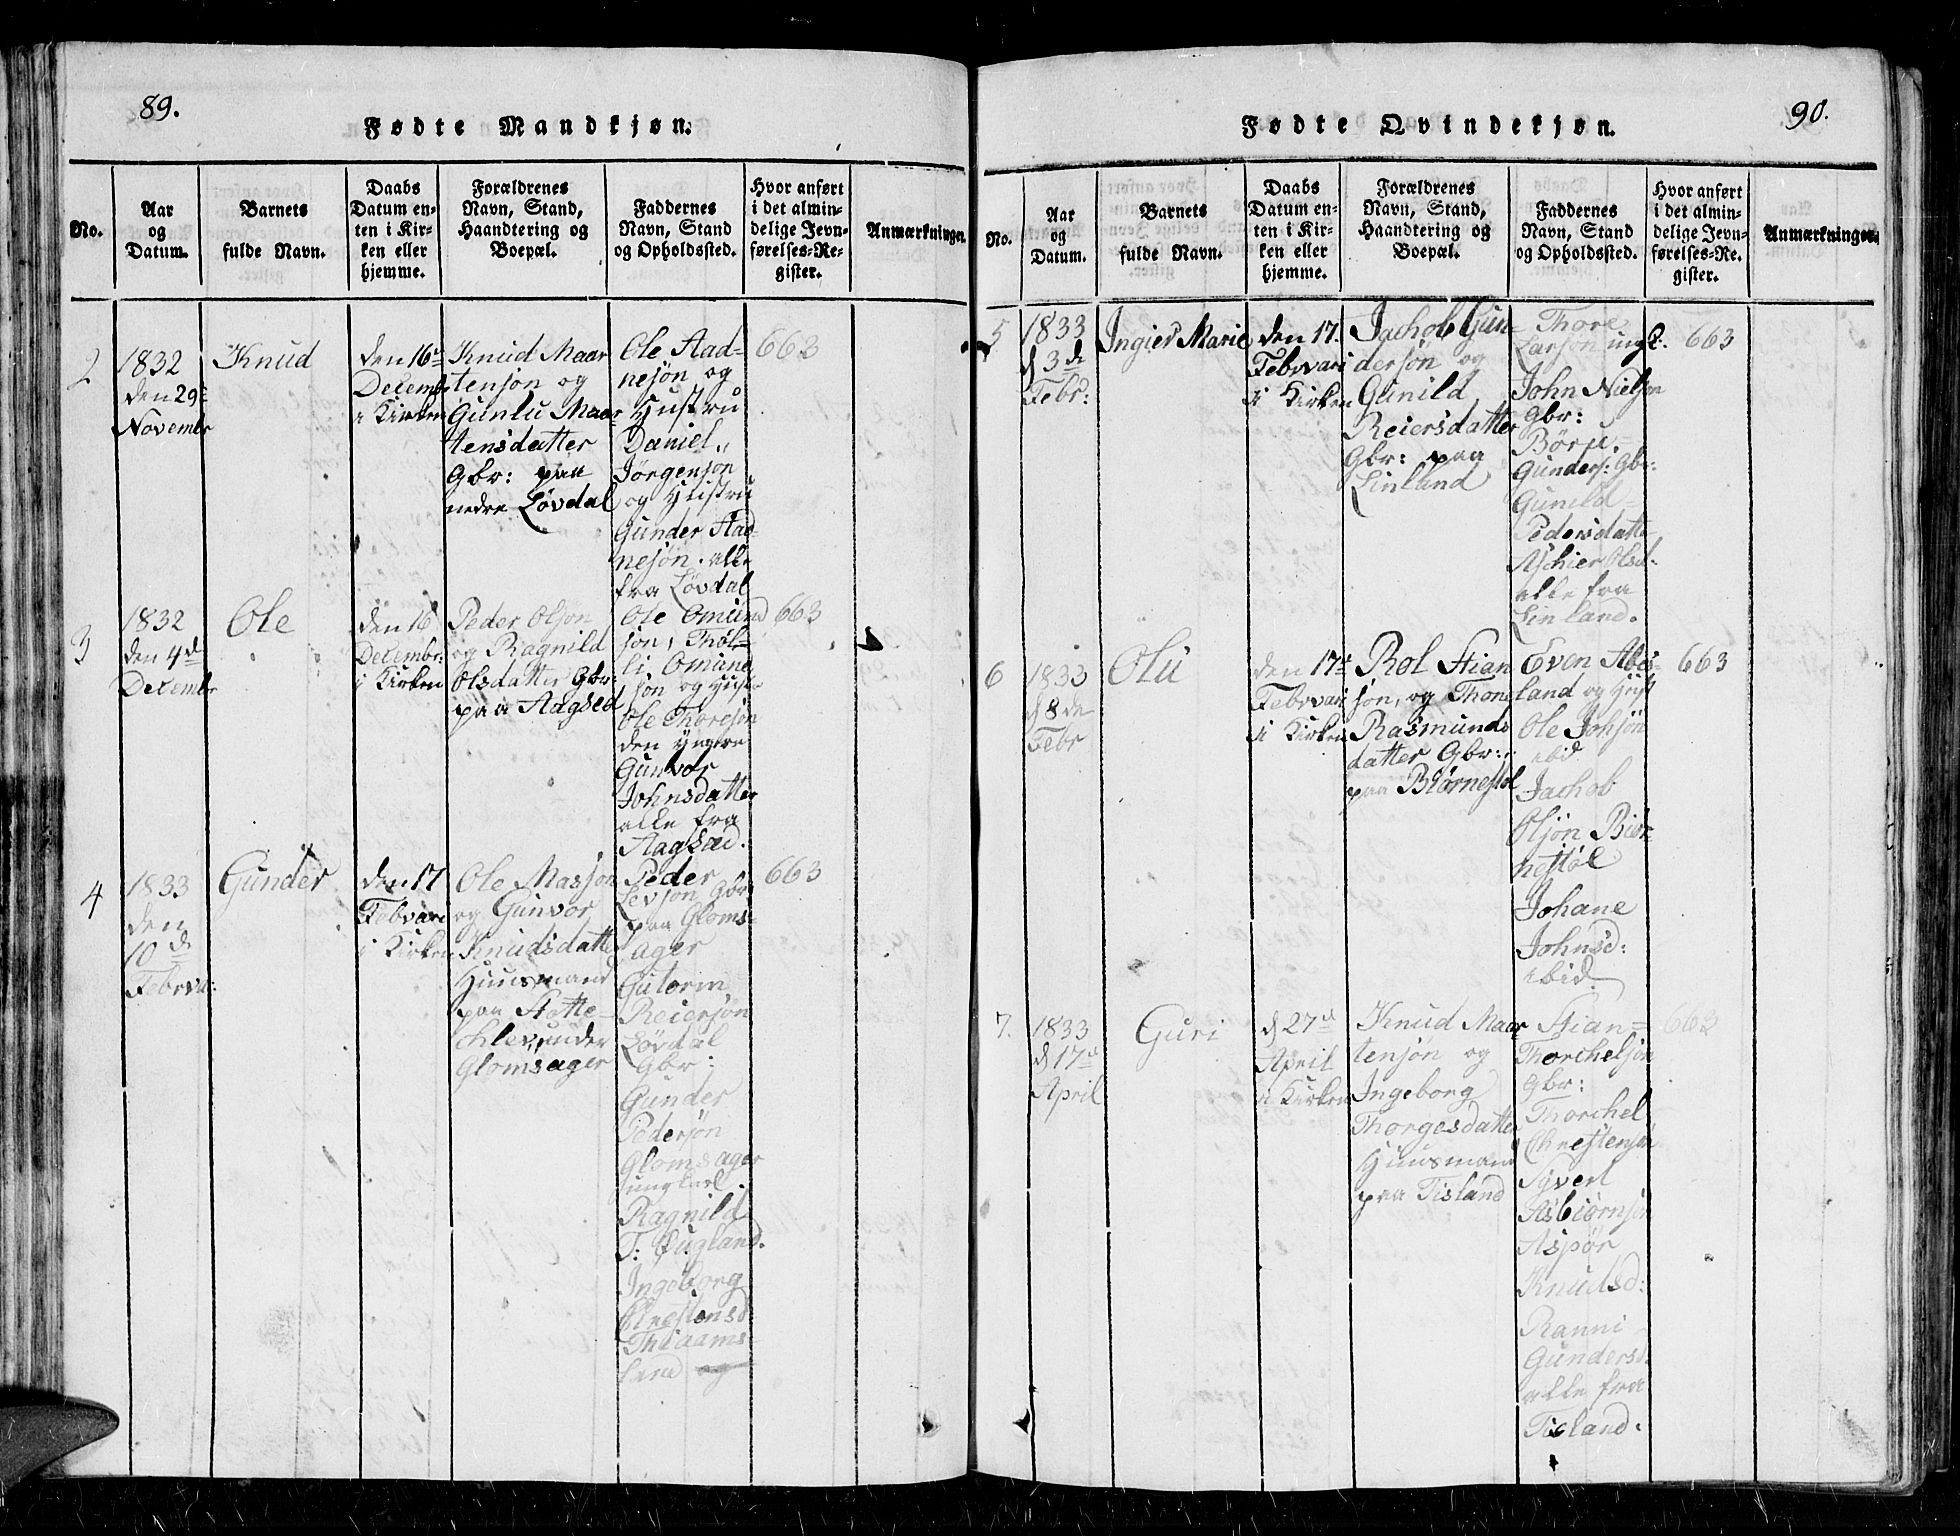 89.
Fødte Mandkjøn.
No.
Aar
og
Datum.
Barnets
fulde Navn.
Daabs
Datum en-
ten i Kir-
ken eller
hjemme.
Forældrenes
Navn, Stand,
Haandtering og
Boepæl.
Faddernes
Navn, Stand
og Opholdssted.
Hvor anført
i det almin-
delige Jevn-
førelses-Re-
gister.
Anmærkninger.
2
1832
den 29
Novembr
Knud
den 16
Decembr
i Kirken
Knud Maar
tensøn og
Gunlu Maar
tensdatter
Gbr: paa
nedre Løvdal
Ole Aad-
nesøn og
Hustru
Daniel
Jørgensøn
og Hustru
Gunder Aad-
nesøn. alle
fra Løvdal
663
3
1832
den 4de
Decembr
Ole
den 16
Decembr:
i Kirken
Peder Olsøn
og Ragnild
Olsdatter Gbr:
paa Aagsed
Ole Omund
søn, Thol-
li Omund
søn og Hust-
Ole Thoresøn
den yngere
Gunvor
Johnsdatter
alle fra
Aagsæd.
663
4
1833
den
10de
Febrva:
Gunder
den 17
Febvari
i Kirken
Ole Massøn
og Gunvor
Knudsdatter
Huusmand
paa Stotte-
klev under
Glomsager
Peder
Levsøn Gbr
paa Gloms-
ager
Gutorm
Reiersøn
Løvdal
Gbr:
Gunder
Pedersøn
Glomsager
ungkarl.
Ragnild
T: Fugland.
Ingeborg
Chrestensd
Thiaams-
land og
663
90.
Fødte Qvindekjøn.
No.
Aar
og
Datum.
Barnets
fulde Navn.
Daabs
Datum en-
ten i Kir-
ken eller
hjemme.
Forældrenes
Navn, Stand,
Haandtering og
Boepæl.
Faddernes
Navn, Stand,
og Opholdssted.
Hvor anført
i det almin-
delige Jevn-
førelses-Re-
gister.
Anmærkninger.
5
1833
d 3de
Febr:
Ingier Marie
den 17.
Febrvari
i Kirken
Jachob Gun-
dersøn og
Gunild
Reiersdatter
Gbr: paa
Linland
Thore
Larsøn ungk.
John Nielsøn
Gbr:
Børu
Gunders: Gbr:
Gunild
Pedersdatte
Aschier Olsd:
alle fra
Linland.
663
6
1833
d 8de
Febr
Olu
den 17t
Febrvari
i Kirken
Rol Stian
søn, og Thone
Rasmunds
datter Gbr:
paa Biørnestøl
Even Abes-
land og Hust
Ole Johsøn
ibid
Jachob
Olsøn Biør
nestøl
Johane
Johnsd:
ibid.
663
7.
1833
d 17d
April
Guri
d 27d
April
i Kirken
Knud Maar
tensøn og
Ingeborg
Thorgesdatter
Huusmand
paa Tisland
Stian
Thorchelsøn
Gbr:
Thorchel
Chrestensøn
Syverl
Asbiørnsøn
Aspør
Knudsd:
Ranni
Gundersd.
alle fra
Tisland.
663